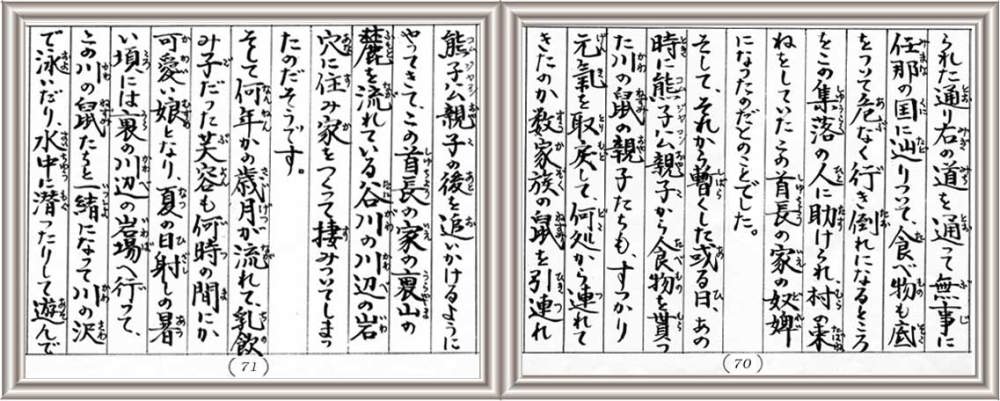 られた通り右の道を通って無事に
任那の国に辿りついて、食べ物も底
をついて危なく行き倒れになるところ
をこの集落の人に助けられ、村の束
ねをしていたこの首長の家の奴婢
になったのだとのことでした。
そして、それから暫くした或る日、あの
時に熊子公親子から食物を貰っ
た川の鼠の親子たちも、すっかり
元氣を取戻して、何処から連れて
きたのか数家族の鼠を引連れ
(70)
熊子公親子の後を追いかけるように
やってきて、この首長の家の裏山の
麓を流れている谷川の川辺の岩
穴に住み家をつくって棲みついてしまっ
たのだそうです。
そして何年かの歳月が流れて、乳飲
み子だった芙容も何時の間にか
可愛い娘となり、夏の日射しの暑
い頃には裏の川辺の岩場へ行って、
この川の鼠たちと一緒になって川の沢
で泳いだり、水中に潜ったりして遊んで
(71)